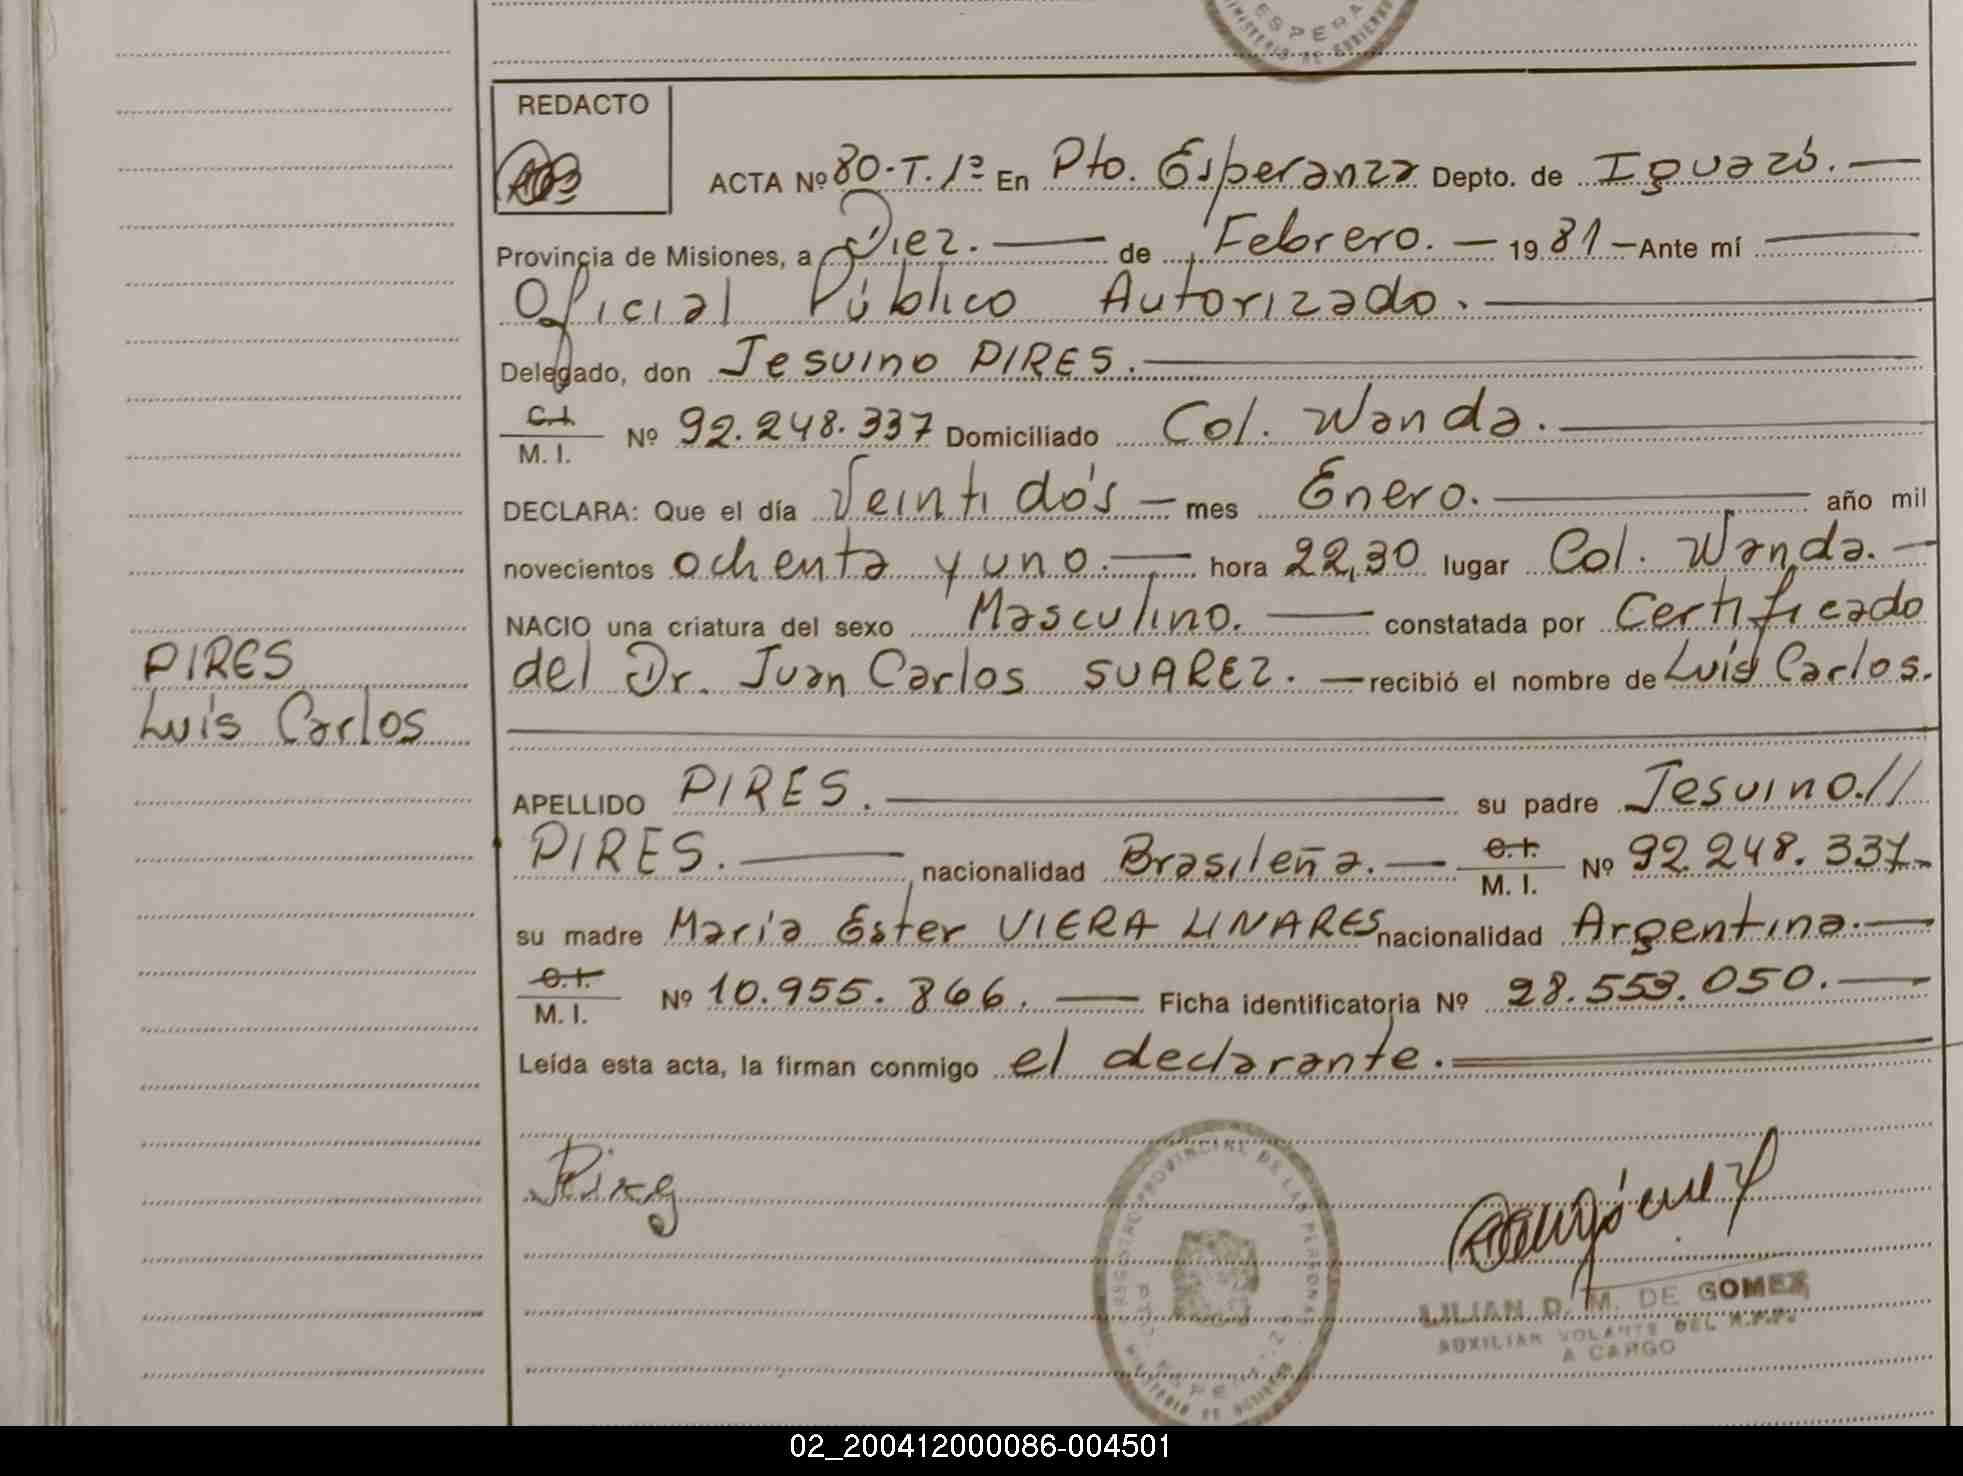 ESPERA
MINISTERIO DE GOBIERNO
REDACTO
ACTA Nº 80-T.1º En Pto. Esperanza Depto. de Iguazú.
Provincia de Misiones, a Diez. de Febrero. 19 81 Ante mí
Oficial Público Autorizado.
Delegado, don Jesuino PIRES.
C.I.
M. I. Nº 92.248.337 Domiciliado Col. Wanda.
DECLARA: Que el día Veinti dós mes Enero. año mil
novecientos ochenta y uno. hora 22,30 lugar Col. Wanda.
NACIO una criatura del sexo Masculino. constatada por Certificado
del Dr. Juan Carlos SUAREZ. recibió el nombre de Luís Carlos.
PIRES
Luís Carlos
APELLIDO PIRES. su padre Jesuino.//
PIRES. nacionalidad Brasileña. C.I.
M. I. Nº 92.248.337.
su madre María Ester VIERA LINARES nacionalidad Argentina.
C.I.
M. I. Nº 10.955.866. Ficha identificatoria Nº 28.553.050.
Leída esta acta, la firman conmigo el declarante.
REGISTRO PROVINCIAL DE LAS PERSONAS
PTO. ESPERANZA
MINISTERIO DE GOBIERNO
LILIAN D. M. DE GOMEZ
AUXILIAR VOLANTE DEL R.P.P.
A CARGO
02_200412000086-004501